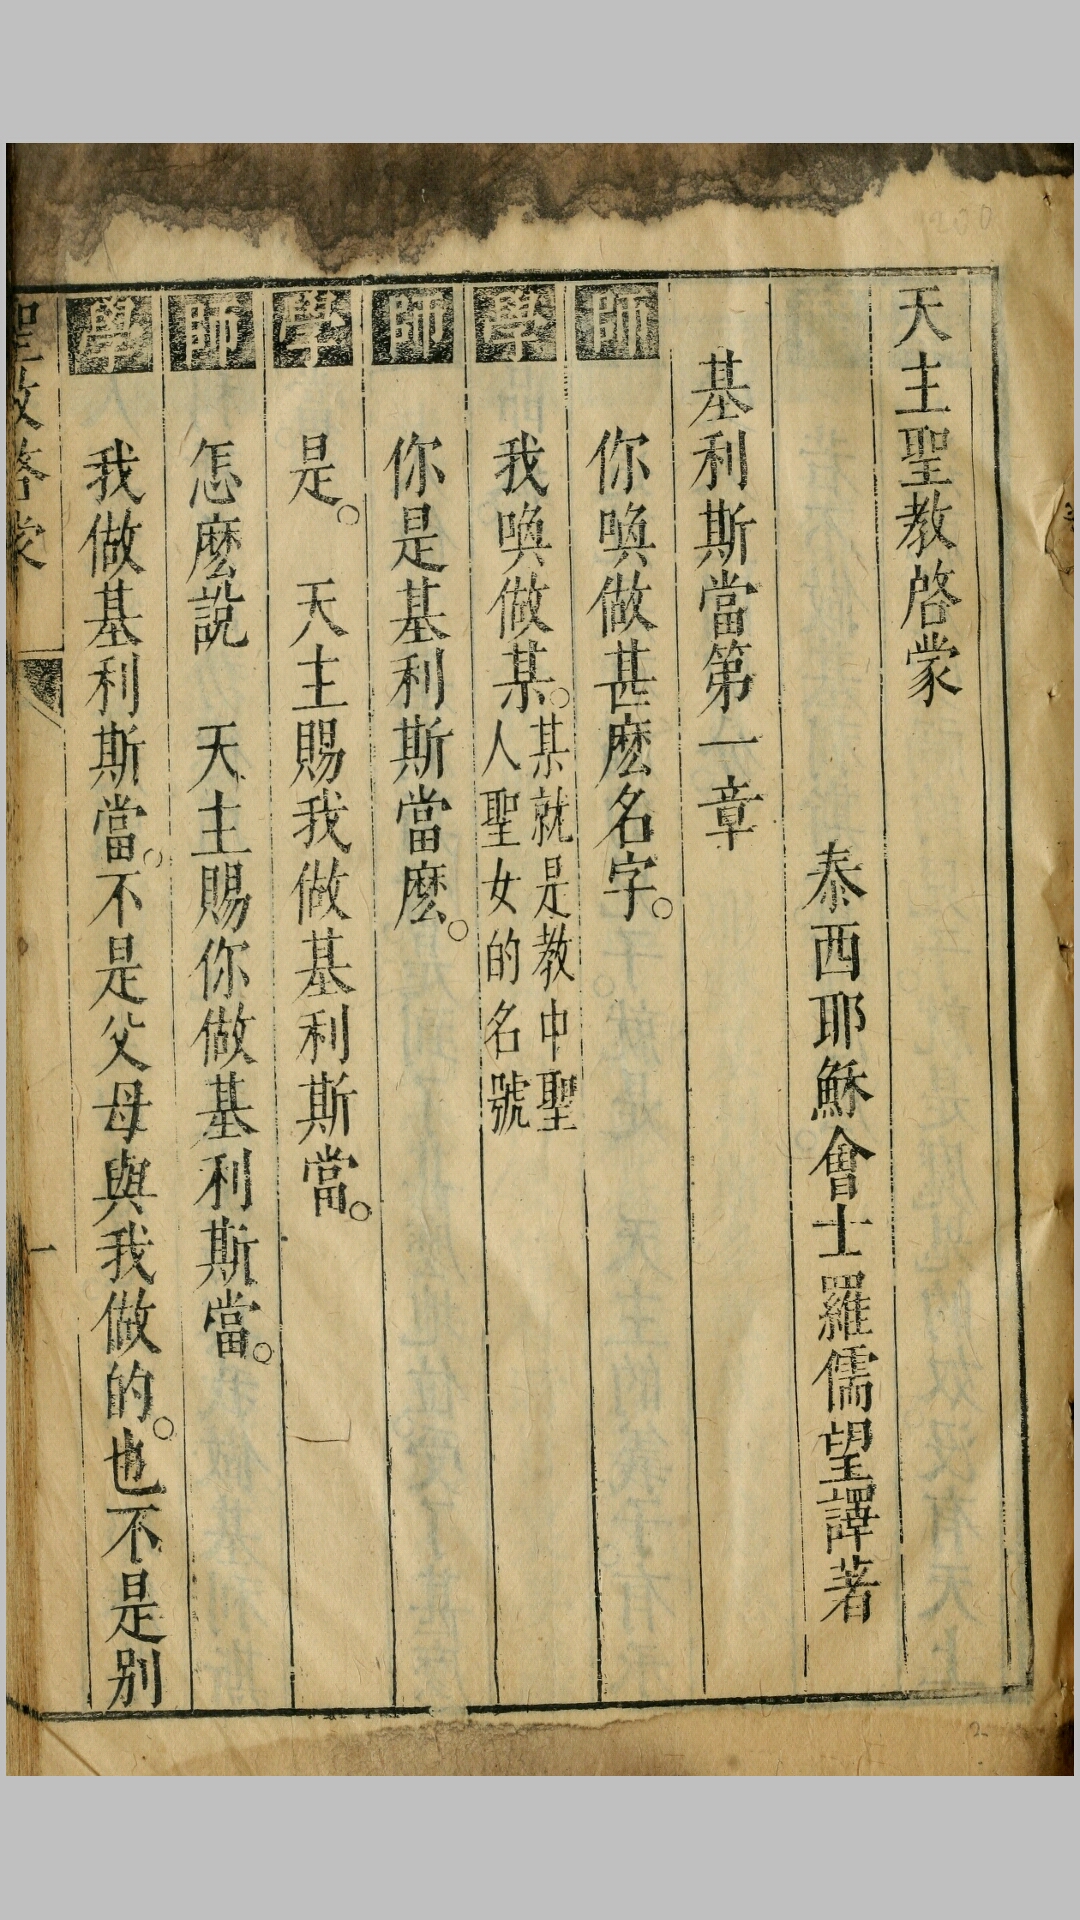 天主聖教啓蒙
泰西耶穌會士羅儒望譯著
基利斯當第一章
師 你喚做甚麽名字。
學 我喚做某。某就是教中聖
人聖女的名號
師 你是基利斯當麽。
學 是。天主賜我做基利斯當。
師 怎麽説 天主賜你做基利斯當。
學 我做基利斯當。不是父母與我做的。也不是別
聖教啓蒙 一
200
2